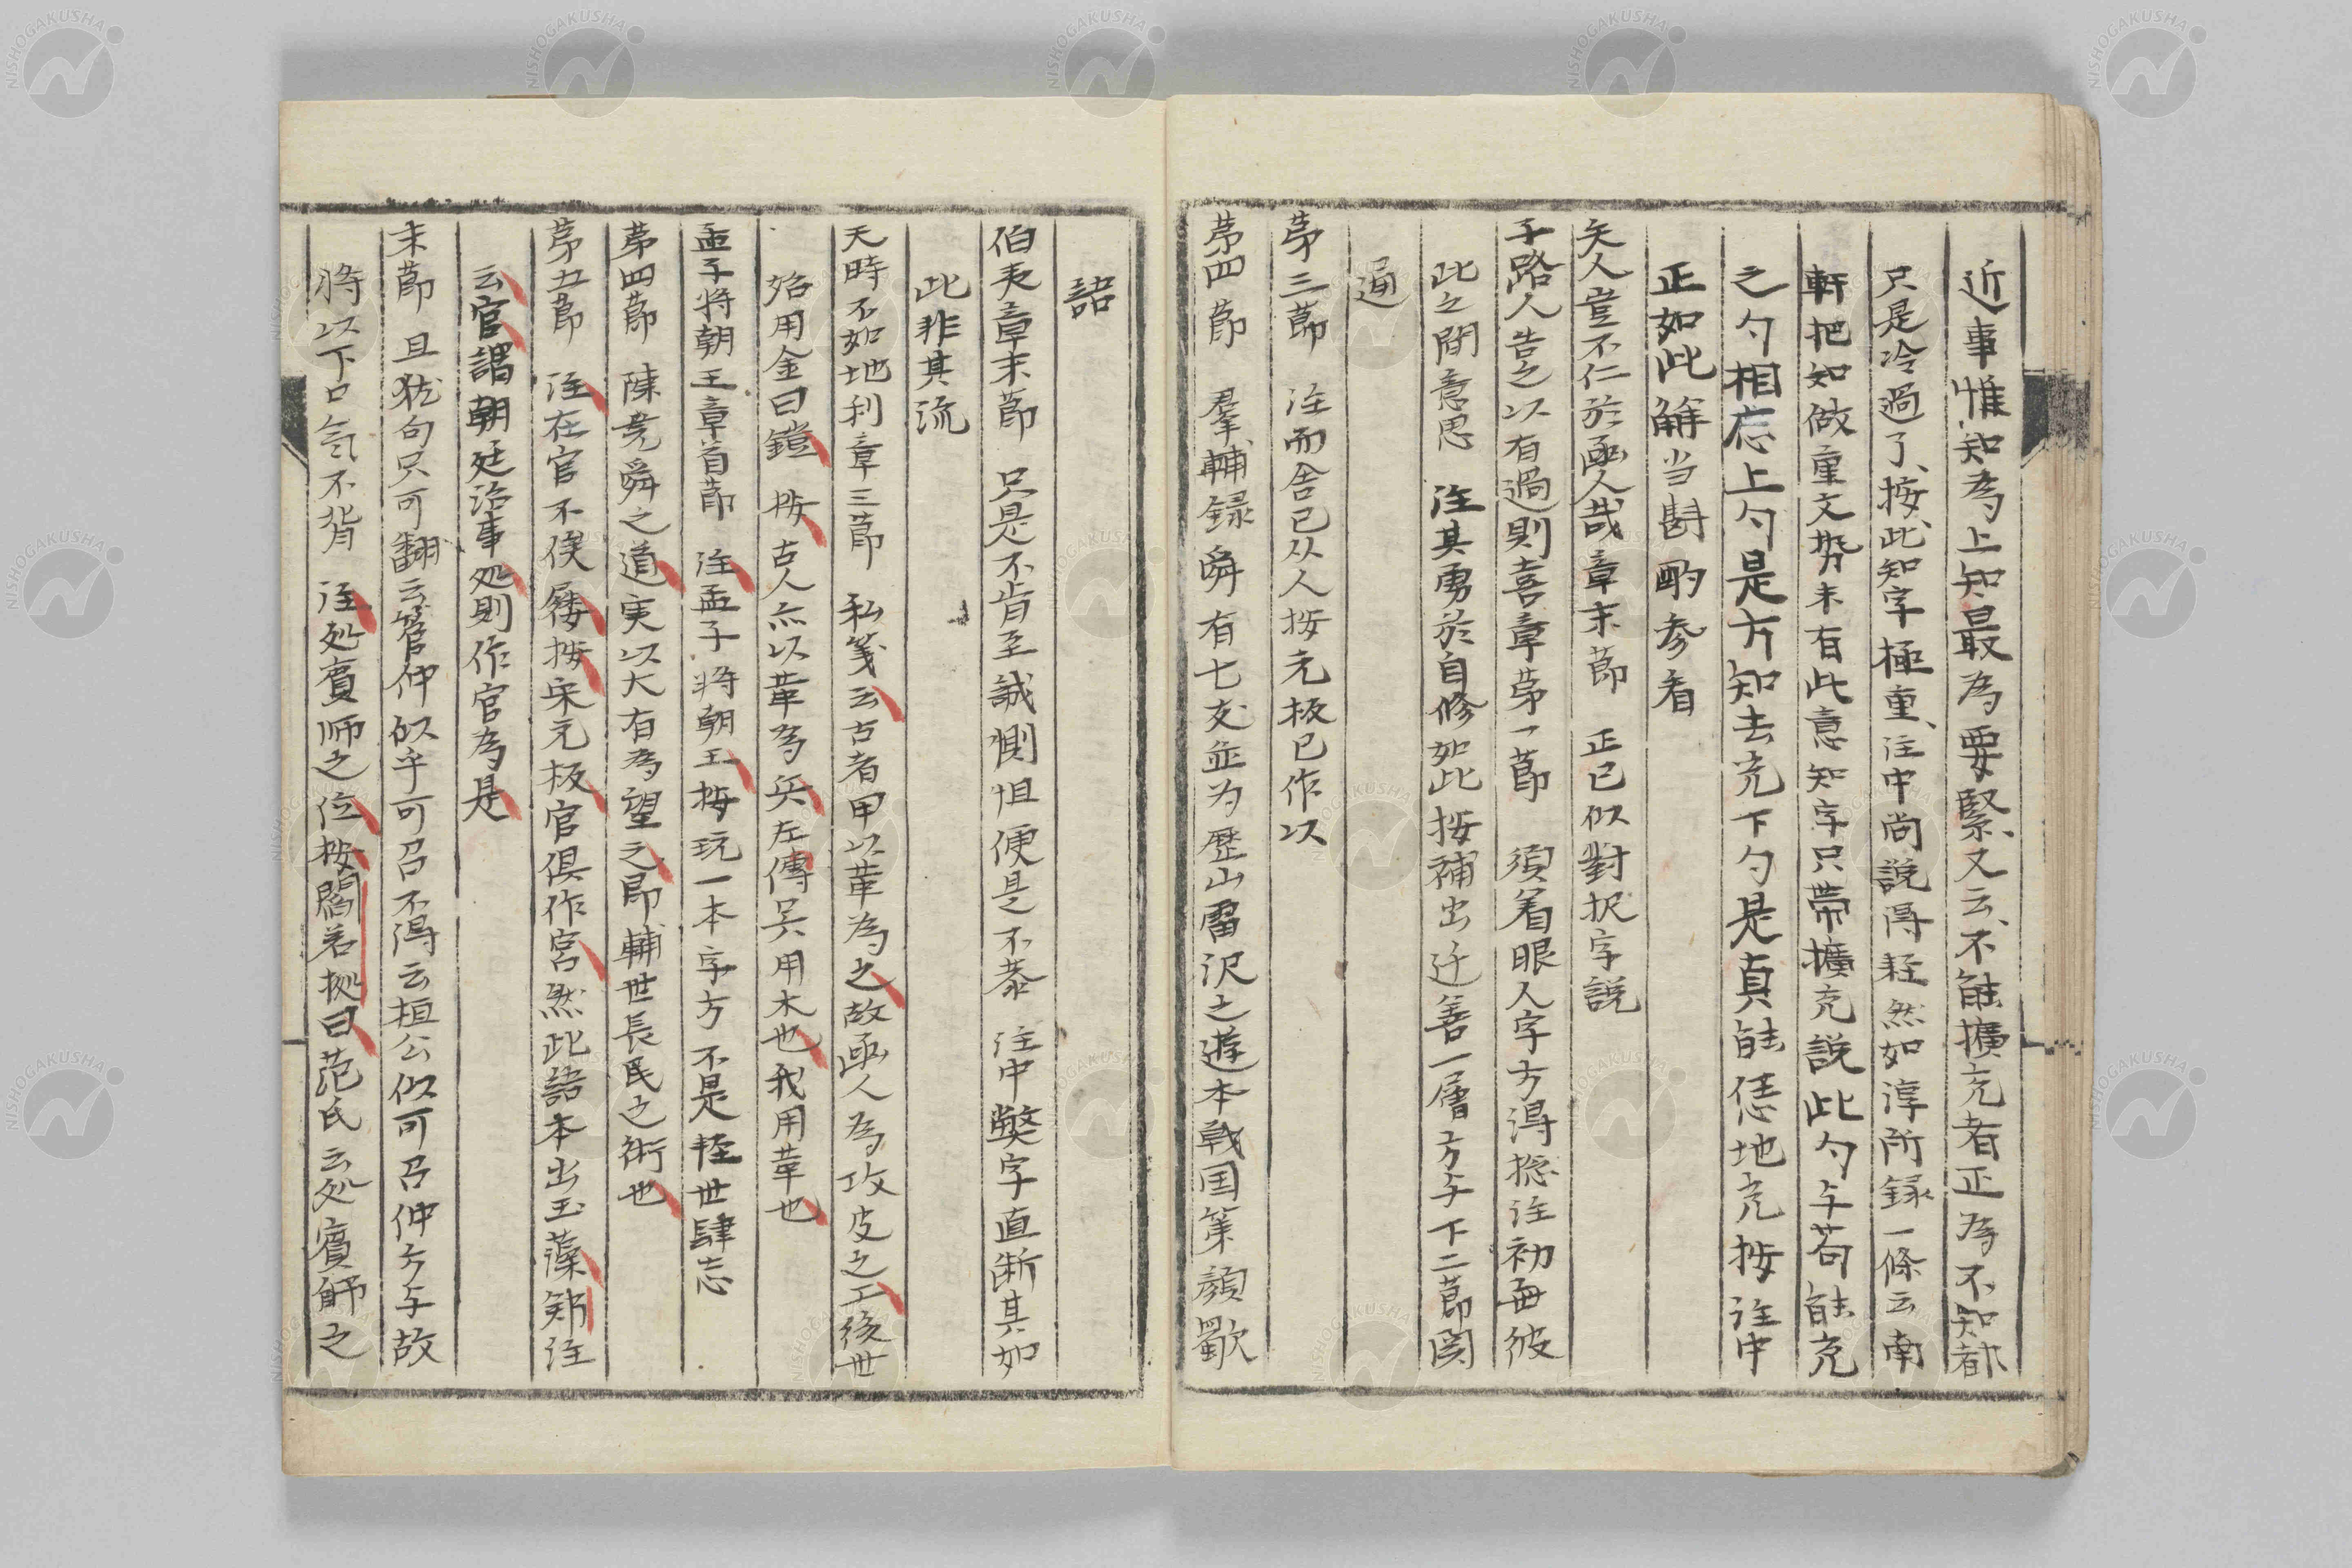 近事惟知為上知最為要緊又云不能擴充者正為不知都
只是冷過了按此知字極重注中尚説得軽然如淳所録一條云南
軒把知做重文勢未有此意知字只帯擴充説此勺与苟能充
之勺相應上勺是方知去充下勺是真能恁地充按注中
正如此解当斟酌参看
矢人豈不仁於函人哉章末節 正已似對択字説
子路人告之以有過則喜章第一節 須着眼人字方得捴注初毎彼
此之間意思 注其勇於自修如此按補出迁善一層方与下二節関
過
第三節 注而舎己从人按元板己作以
第四節 羣輔録舜有七友並为歴山雷沢之遊本戦国策顔歜
語
伯夷章末節 只是不肯至誠惻怛便是不恭 注中獘字直断其如
此非其流
天時不如地利章三節 私箋云古者甲以革為之故函人為攻皮之工後世
始用金曰鎧 按古人亦以革為兵左傳呉用木也我用革也
孟子将朝王章首節 注孟子将朝王按玩一本字方不是軽世肆志
第四節 陳堯舜之道実以大有為望之即輔世長民之術也
第五節 注在官不俟屨按宋元板官倶作宮然此語本出玉藻鄭注
云官謂朝廷治事処則作官為是
末節 且犹句只可翻云管仲似乎可召不得云桓公似可召仲方与故
将以下口氣不背 注処賓師之位按閻若拠曰范氏云処賓師之